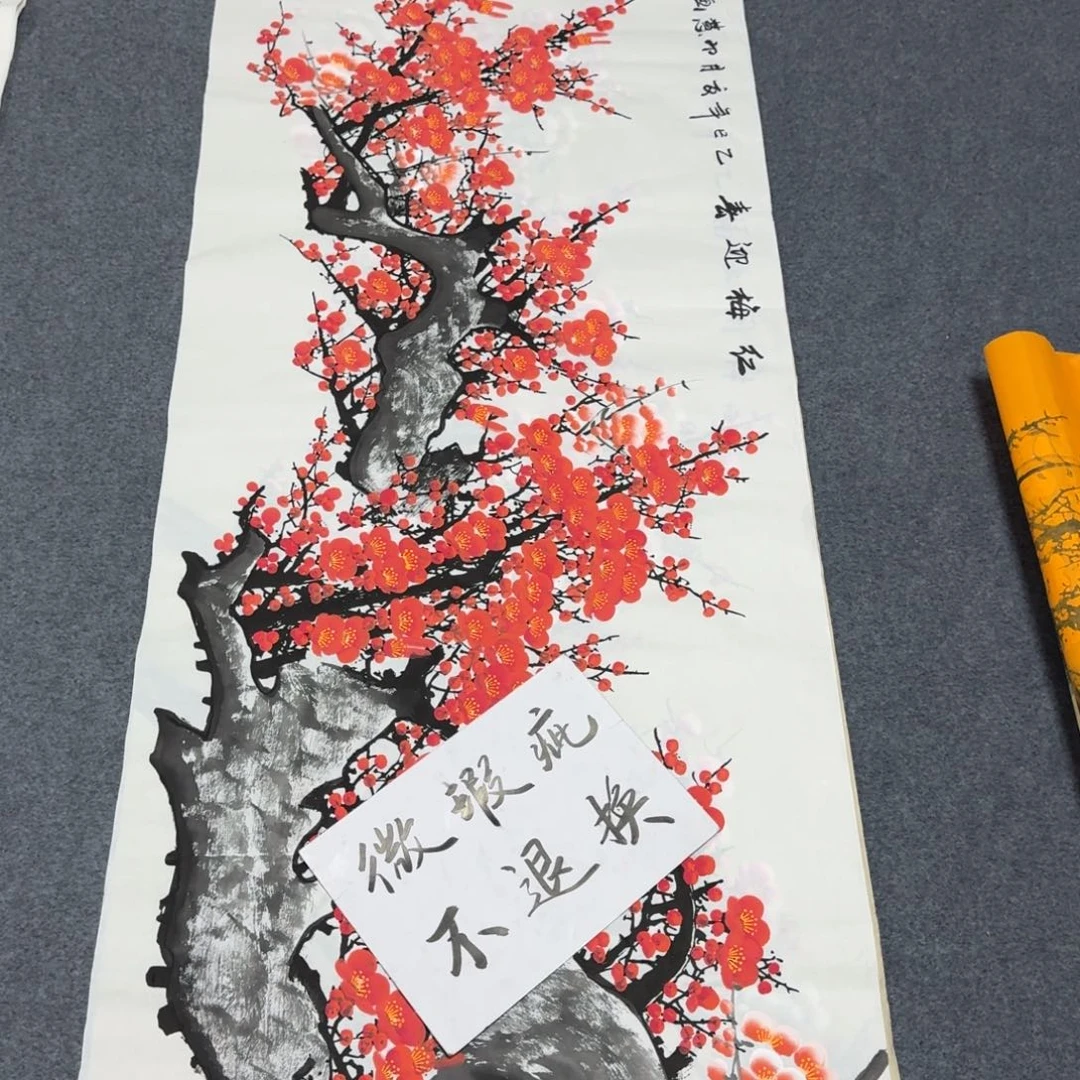 红梅迎春 乙巳年
微瑕疵
不退换